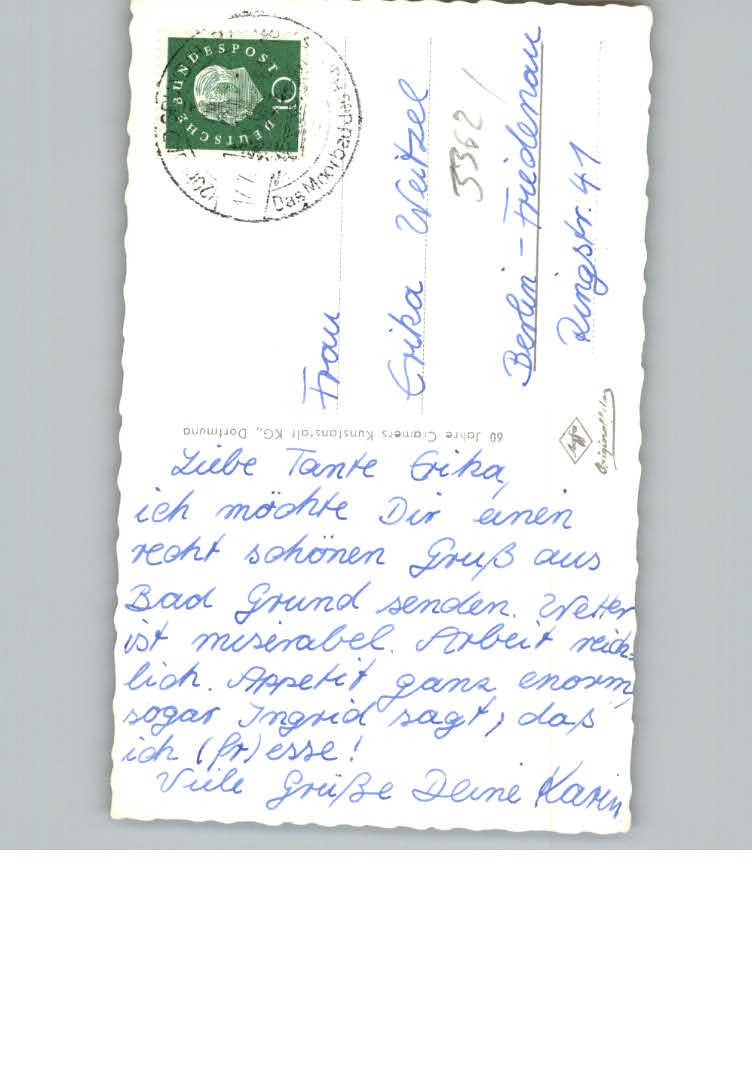 DEUTSCHE BUNDESPOST
10
Das Moor
Frau
Erika Weitzel
5362
Berlin-Friedenau
Ringstr. 41
60 Jahre Cramers Kunstanstalt KG., Dortmund
Agfa
Liebe Tante Erika,
ich möchte Dir einen
recht schönen Gruß aus
Bad Grund senden. Wetter
ist miserabel. Arbeit reich=
lich. Appetit ganz enorm,
sogar Ingrid sagt, daß
ich (fr)esse!
Viele Grüße Deine Karin